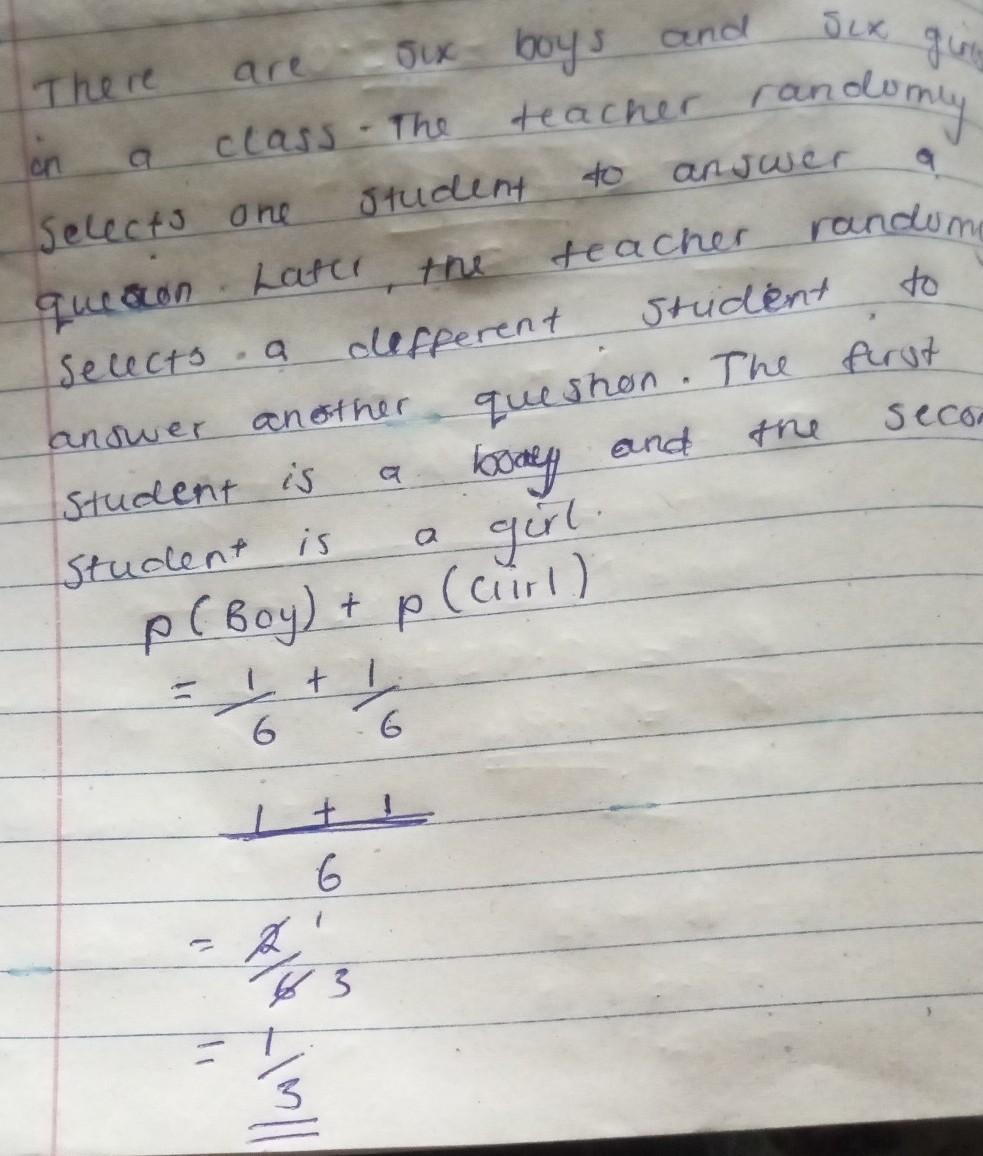 There are six boys and six
in a class. The teacher randomly
selects one student to answer a
question. Later, the teacher random
selects a different student to
answer another question. The first
student is a and the seco
student is a girl.
P(Boy) + P(Girl)
= 1/6 + 1/6
1 + 1
6
= 2/6 1 3
= 1/3